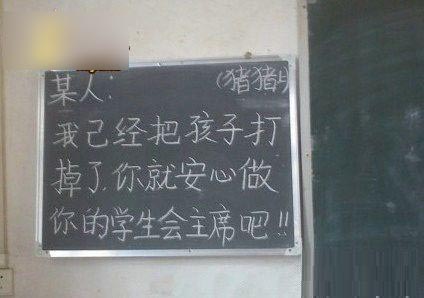 某人: (猪猪
我已经把孩子打
掉了,你就安心做
你的学生会主席吧!!